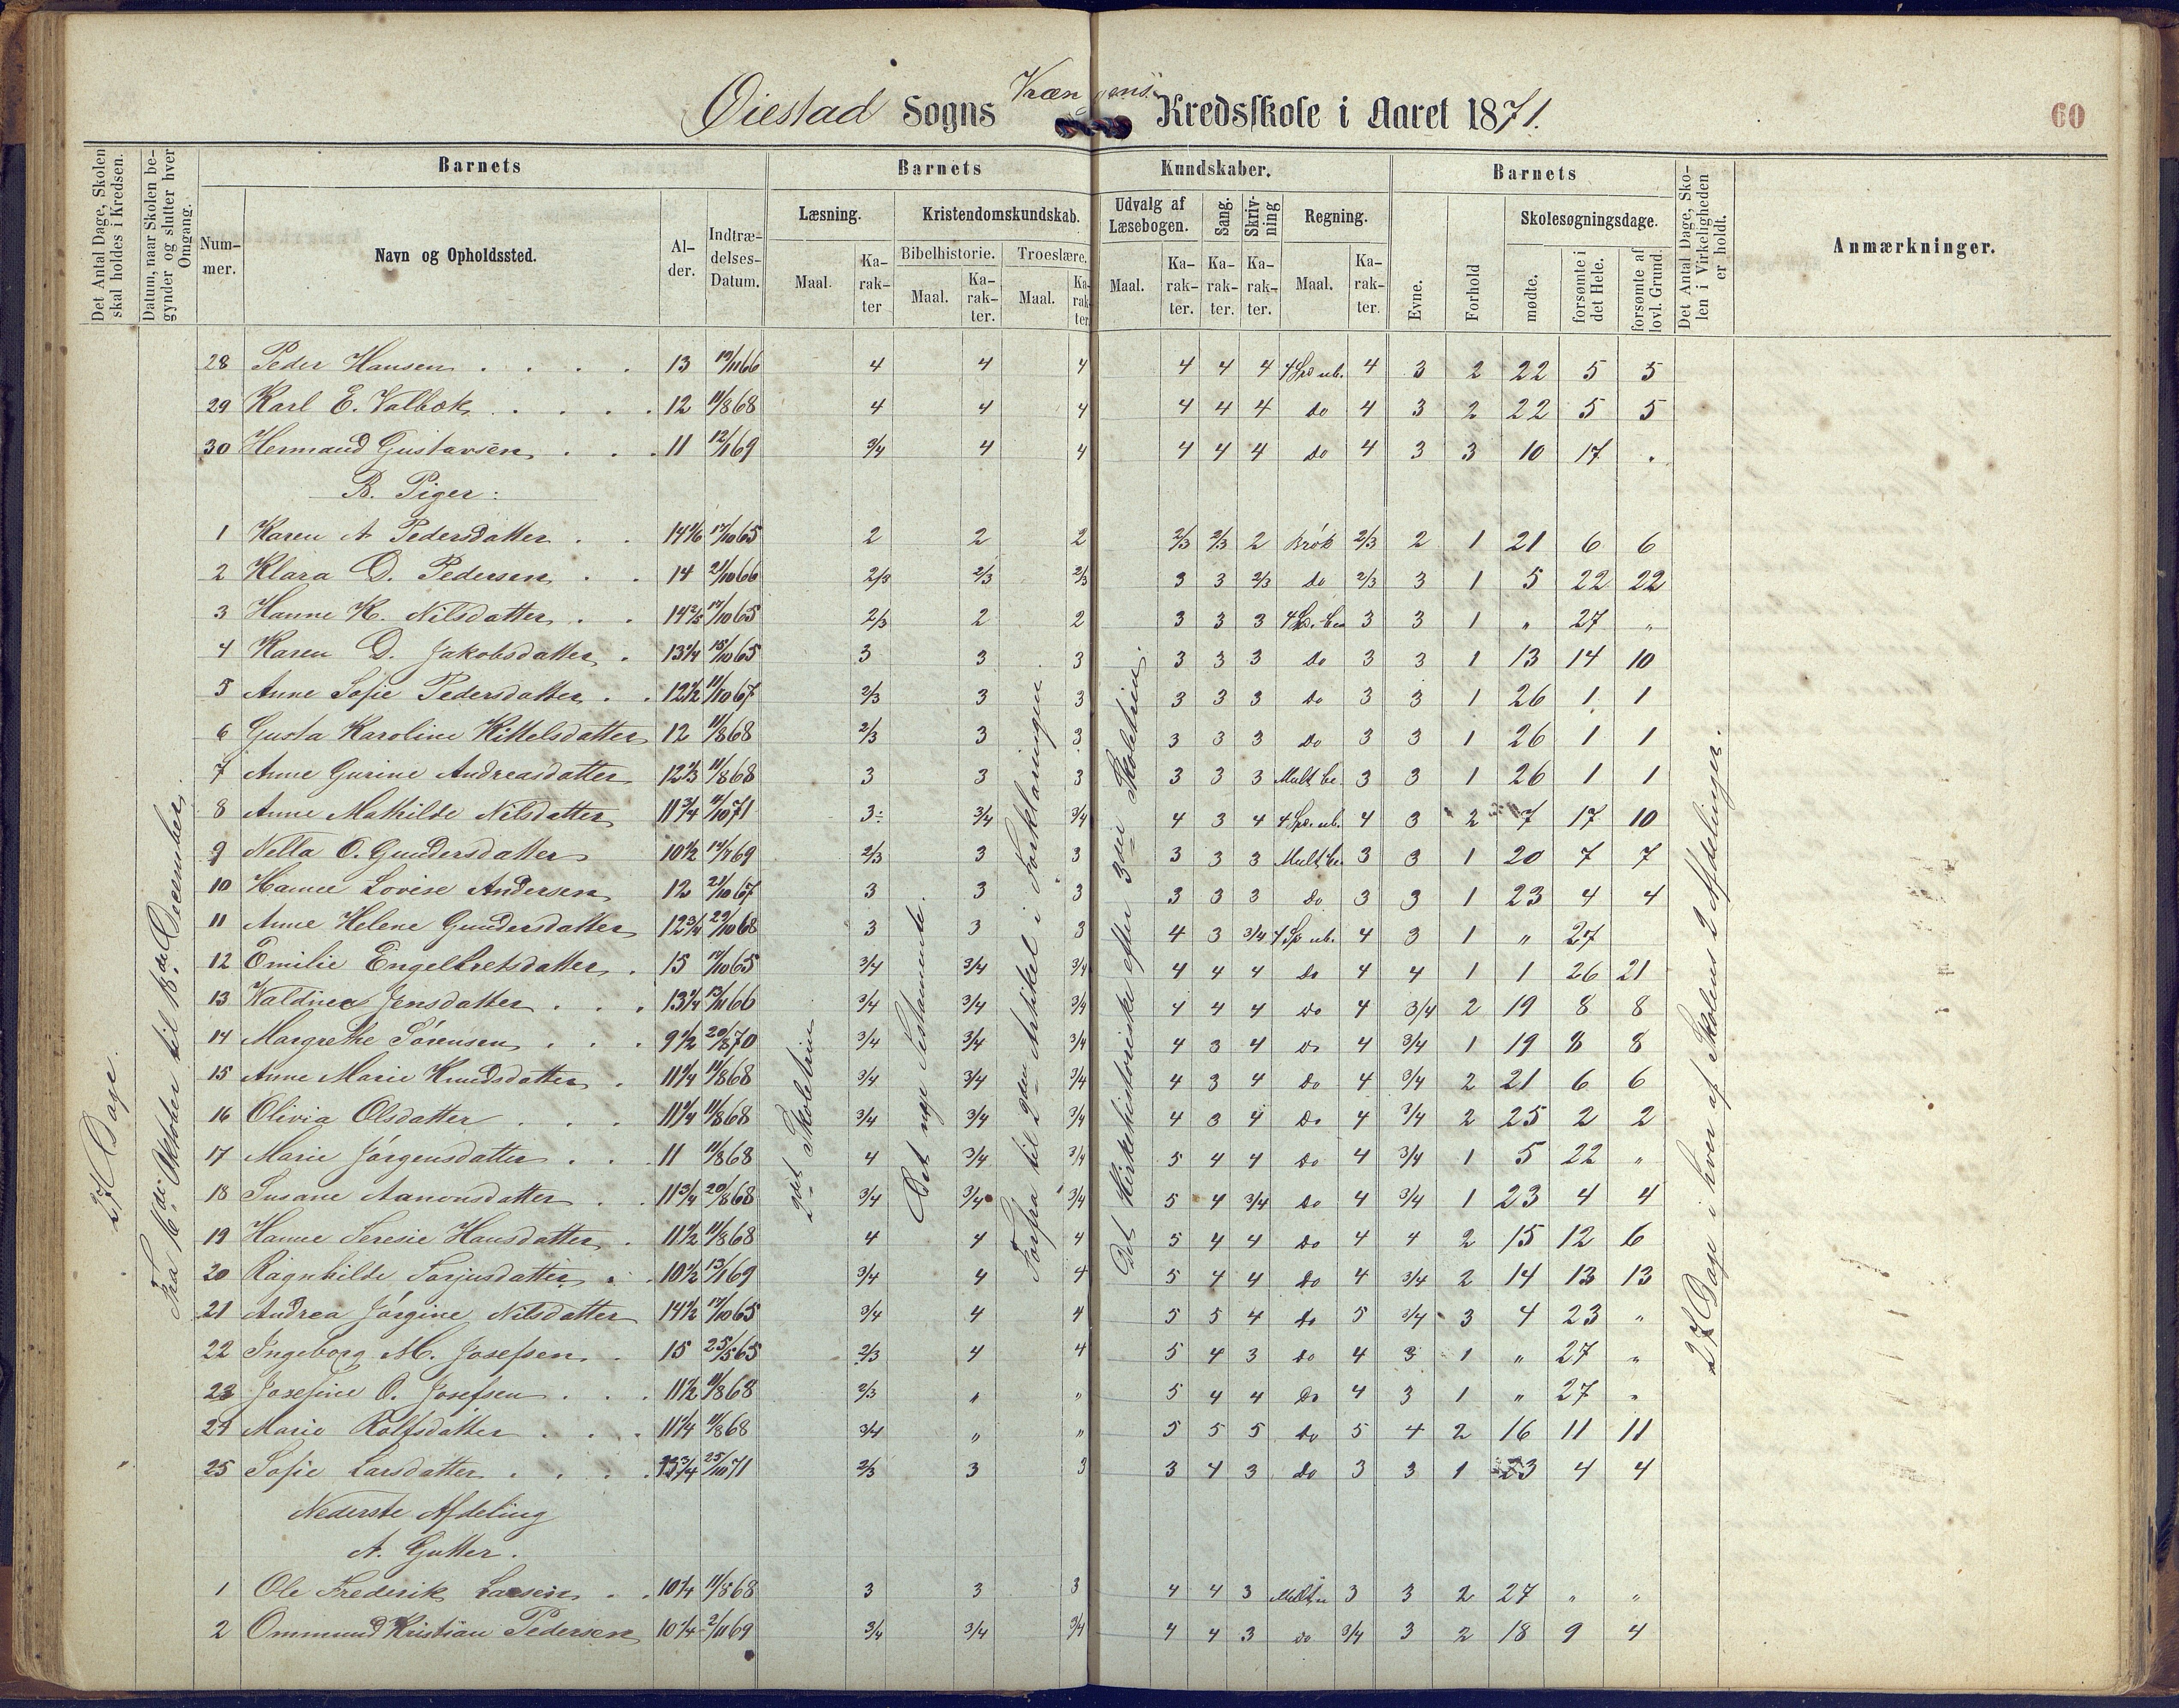 Øiestad Sogns Vrængens Kredsskole i Aaret 1871.
60
Det Antal Dage, Skolen skal holdes i Kredsen.
Datum, naar Skolen begynder og slutter hver Omgang.
Barnets
Nummer.
Navn og Opholdssted.
Alder.
Indtrædelses-Datum.
Barnets Kundskaber.
Læsning.
Maal.
Karakter
Kristendomskundskab.
Bibelhistorie.
Maal.
Karakter.
Troeslære.
Maal.
Karakter.
Udvalg af Læsebogen.
Maal.
Karakter.
Sang.
Karakter.
Skrivning
Karakter.
Regning.
Maal.
Karakter.
Barnets
Evne.
Forhold
Skolesøgningsdage.
mødte.
forsømte i det Hele.
forsømte af lovl. Grund.
Det Antal Dage, Skolen i Virkeligheden er holdt.
Anmærkninger.
27 Dage.
Fra 16de Oktober til 18de December.
2det Skoletrin
Det nye Testamente.
Forfra til 2den Artikel i Forklaringen
Det Kirkehistoriske efter 3die Skoletrin.
27 Dage i hver af Skolens 2 Afdelinger.
28 Peder Hansen 13 19/11 66 4 4 4 4 4 4 4 Sp. ub. 4 3 2 22 5 5
29 Karl E. Valbok 12 11/8 68 4 4 4 4 4 4 do 4 3 2 22 5 5
30 Hermand Gustavsen 11 12/1 69 3/4 4 4 4 4 4 do 4 3 3 10 17 "
B. Piger:
1 Karen A Pedersdatter 17/10 65 2 2 2 2/3 2/3 2 Brøk 2/3 2 1 21 6 6
2 Klara D. Pedersen 14 21/10 66 2/3 2/3 2/3 3 3 2/3 do 2/3 3 1 5 22 22
3 Hanne K. Nilsdatter 17/10 65 2/3 2 2 3 3 3 4 Sp. be 3 3 1 " 27 "
4 Karen D. Jakobsdatter 13 1/4 15/10 65 3 3 3 3 3 3 do 3 3 1 13 14 10
5 Anne Sofie Pedersdatter 12 1/2 11/10 67 2/3 3 3 3 3 3 do 3 3 1 26 1 1
6 Gusta Karoline Kittelsdatter 12 11/8 68 2/3 3 3 3 3 3 do 3 3 1 26 1 1
7 Anne Gurine Andreasdatter 11/8 68 3 3 3 3 3 3 Mult be. 3 3 1 26 1 1
8 Anne Mathilde Nilsdatter 11 3/4 71 3 3/4 3/4 4 3 4 4 Sp. ub. 4 3 2 7 17 10
9 Nella O. Gundersdatter 10 1/2 69 2/3 3 3 3 3 3 Mult be 3 3 1 20 7 7
10 Hanne Lovise Andersen 12 21/10 67 3 3 3 3 3 3 do 3 3 1 23 4 4
11 Anne Helene Gundersdatter 12 3/4 29/10 68 3 3 3 4 3 3/4 4 Sp ub. 4 3 1 " 27
12 Emilie Engelbretsdatter 15 17/10 65 3/4 3/4 3/4 4 4 4 do 4 4 1 1 26 21
13 Valdinea Jensdatter 13 1/4 13/11 66 3/4 3/4 3/4 4 4 4 do 4 3/4 2 19 8 8
14 Margrethe Sørensen 9 1/2 20/8 70 3/4 3/4 3/4 4 3 4 do 4 3/4 1 19 8 8
15 Anne Marie Knudsdatter 11 1/4 11/8 68 3/4 3/4 3/4 4 3 4 do 4 3/4 2 21 6 6
16 Olivia Olsdatter 11 1/4 11/8 68 3/4 3/4 3/4 4 3 4 do 4 3/4 2 25 2 2
17 Marie Jørgensdatter 11 11/8 68 4 3/4 3/4 5 4 4 do 4 3/4 1 5 22 "
18 Susane Aanonsdatter 11 3/4 20/8 68 3/4 3/4 3/4 5 4 3/4 do 4 3/4 1 23 4 4
19 Hanne Seresie Hansdatter 11 1/2 11/8 68 4 4 4 5 4 4 do 4 4 2 15 12 6
20 Ragnhilde Tarjusdatter 10 1/2 13/1 69 3/4 4 4 5 4 4 do 4 3/4 2 14 13 13
21 Andrea Jørgine Nilsdatter 14 1/2 17/10 65 3/4 4 4 5 5 4 do 5 3/4 3 4 23 "
22 Ingeborg M. Josefsen 15 25/5 65 2/3 4 4 5 4 3 do 4 3 1 " 27 "
23 Josefine O. Josefsen 11 1/2 11/8 68 2/3 " " 5 4 4 do 4 3 1 " 27 "
24 Marie Rolfsdatter 11 1/4 11/8 68 3/4 " " 5 5 5 do 5 4 2 16 11 11
25 Sofie Larsdatter 25/10 71 2/3 3 3 3 4 3 do 3 3 1 23 4 4
Nederste Afdeling
A. Gutter.
1 Ole Frederik Larsen 10 1/4 11/8 68 3 3 3 4 4 3 Mult. u 3 3 2 27 " "
2 Ommund Kristian Pedersen 10 1/4 2/11 69 3/4 3/4 3/4 4 4 3 do 3/4 3 2 18 9 4